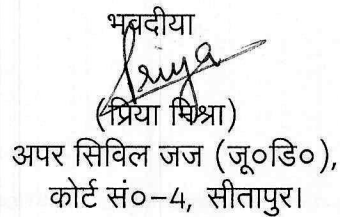 भवदीया
Priya
(प्रिया मिश्रा)
अपर सिविल जज (जू०डि०),
कोर्ट सं०–4, सीतापुर।